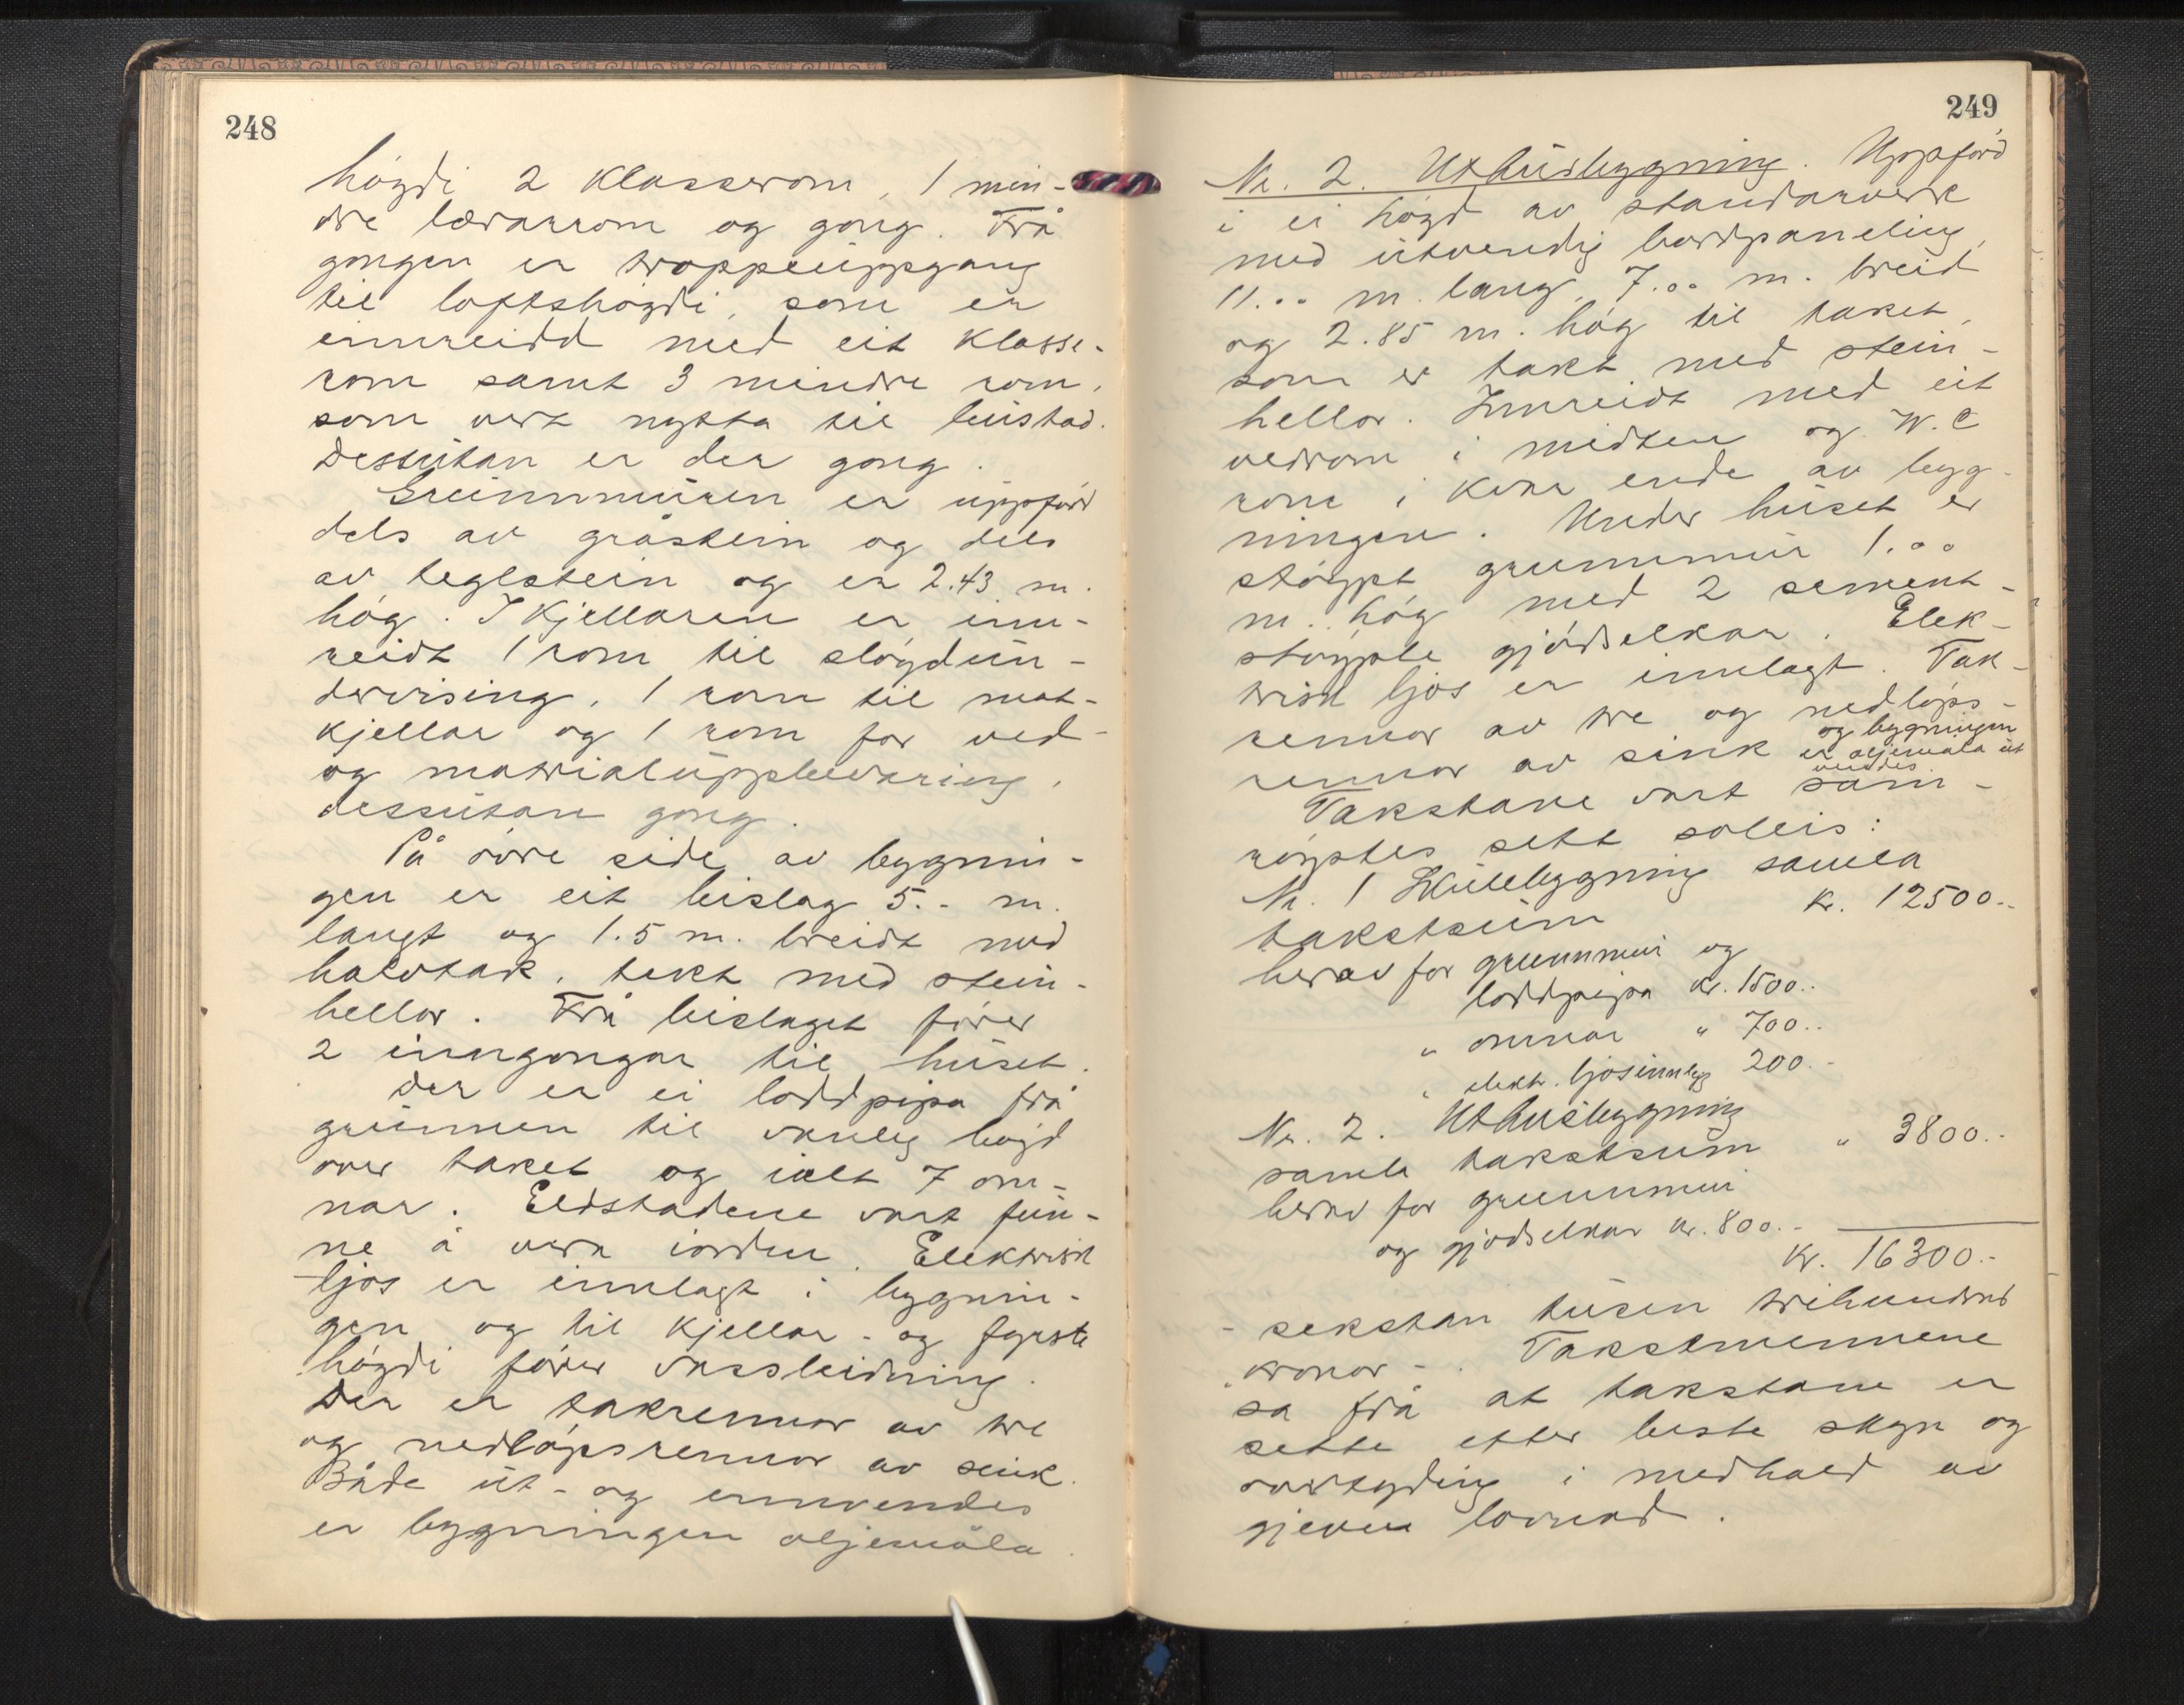 248
högdi 2 klasserom, 1 min-
dre lærarrom og gong. Frå
gongen er trappeuppgang
til loftshögdi, som er
innreidd med eit klasse-
rom samt 3 mindre rom,
som vert nytta til bustad.
Dessutan er der gong.
Grunnmuren er uppförd
dels av gråstein og dels
av teglstein og er 2.43 m.
hög. I kjellaren er inn-
reidt 1 rom til slögdun-
dervising, 1 rom til mat-
kjellar og 1 rom for ved-
og matrialuppbevaring,
dessutan gong.
På övre side av bygnin-
gen er eit bislag 5.- m.
langt og 1.5 m. breidt med
halvtak, tekt med stein-
hellor. Frå bislaget förer
2 inngongar til huset.
Der er ei loddpipa frå
grunnen til vanleg högd
over taket og ialt 7 om-
nar. Eldstadene vart fun-
ne å vera iorden. Elektrisk
ljos er innlagt i bygnin-
gen og til kjellar- og fyrste
högdi förer vassleidning.
Der er takrennor av tre
og nedlöpsrennor av sink.
Både ut- og innvendes
er bygningen oljemåla.
249
Nr. 2. Uthusbygning. Uppförd
i ei högd av standarverk
med utvendig bordpaneling,
11.00 m. lang, 7.00 m. breid
og 2.85 m. hög til taket,
som er takt med stein-
hellor. Innreidt med eit
vedrom i midten og W.C
rom i kvar ende av byg-
ningen. Under huset er
stöypt grunnmur 1.00
m. hög med 2 sement-
stöypte gjödselkar. Elek-
trisk ljos er innlagt. Tak-
rennor av tre og nedlöps-
rennor av sink og bygningen
er oljemåla ut
vendes
Takstane vart sam-
röystes sett soleis:
Nr. 1 Skulebygning samla
takstsum kr. 12500.-
herav for grunnmur og
loddpipa kr. 1500.-
" omnar " 700.-
" elektr. ljosinnlegg 200.-
Nr. 2. Uthusbygning
samla takstsum " 3800.-
herav for grunnmur
og gjödselkar kr. 800.-
kr. 16300.-
- sekstan tusen trihundrad
kronor -. Takstmennene
sa frå at takstane er
sette etter beste skyn og
overtyding i medhald av
gjeven lovnad.